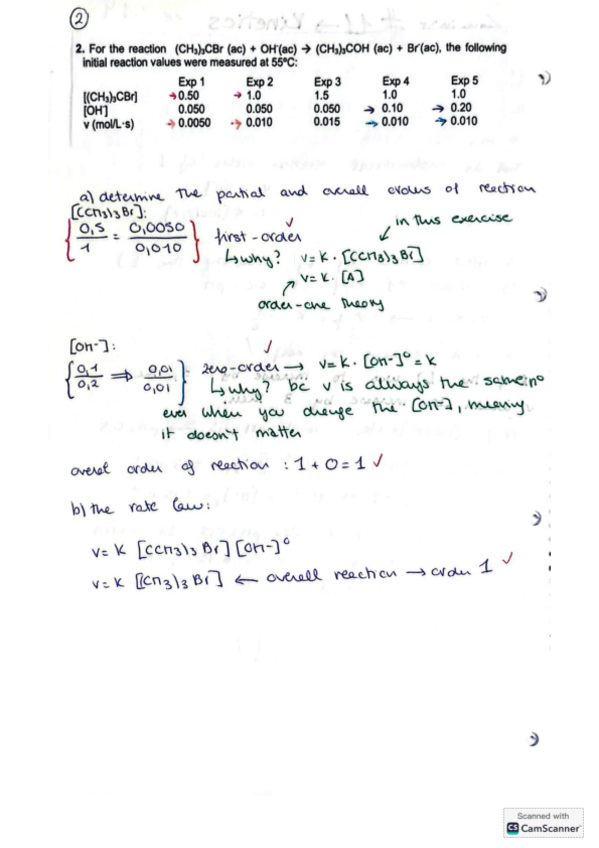 ②
2. For the reaction (CH₃)₃CBr (ac) + OH⁻(ac) → (CH₃)₃COH (ac) + Br⁻(ac), the following
initial reaction values were measured at 55ºC:
Exp 1 Exp 2 Exp 3 Exp 4 Exp 5
[(CH₃)₃CBr] → 0.50 → 1.0 1.5 1.0 1.0
[OH⁻] 0.050 0.050 0.050 → 0.10 → 0.20
v (mol/L·s) → 0.0050 → 0.010 0.015 → 0.010 → 0.010
a) determine the partial and overall orders of reaction
[CCH3)3Br]:
{0,5/1 = 0,0050/0,010} first-order ✓
in this exercise
↳ why? v = K · [CCH3)3Br]
v = K · [A]
order-one theory
[OH-]:
{0,1/0,2 ⇒ 0,01/0,01} zero-order ✓ → v = K · [OH-]⁰ = K
↳ why? bc v is always the same no
even when you change the [OH-], meaning
it doesn't matter
overall order of reaction : 1 + 0 = 1 ✓
b) the rate law:
v = K [CCH3)3 Br] [OH-]⁰
v = K [(CH3)3 Br] ← overall reaction → order 1 ✓
Scanned with
CS CamScanner